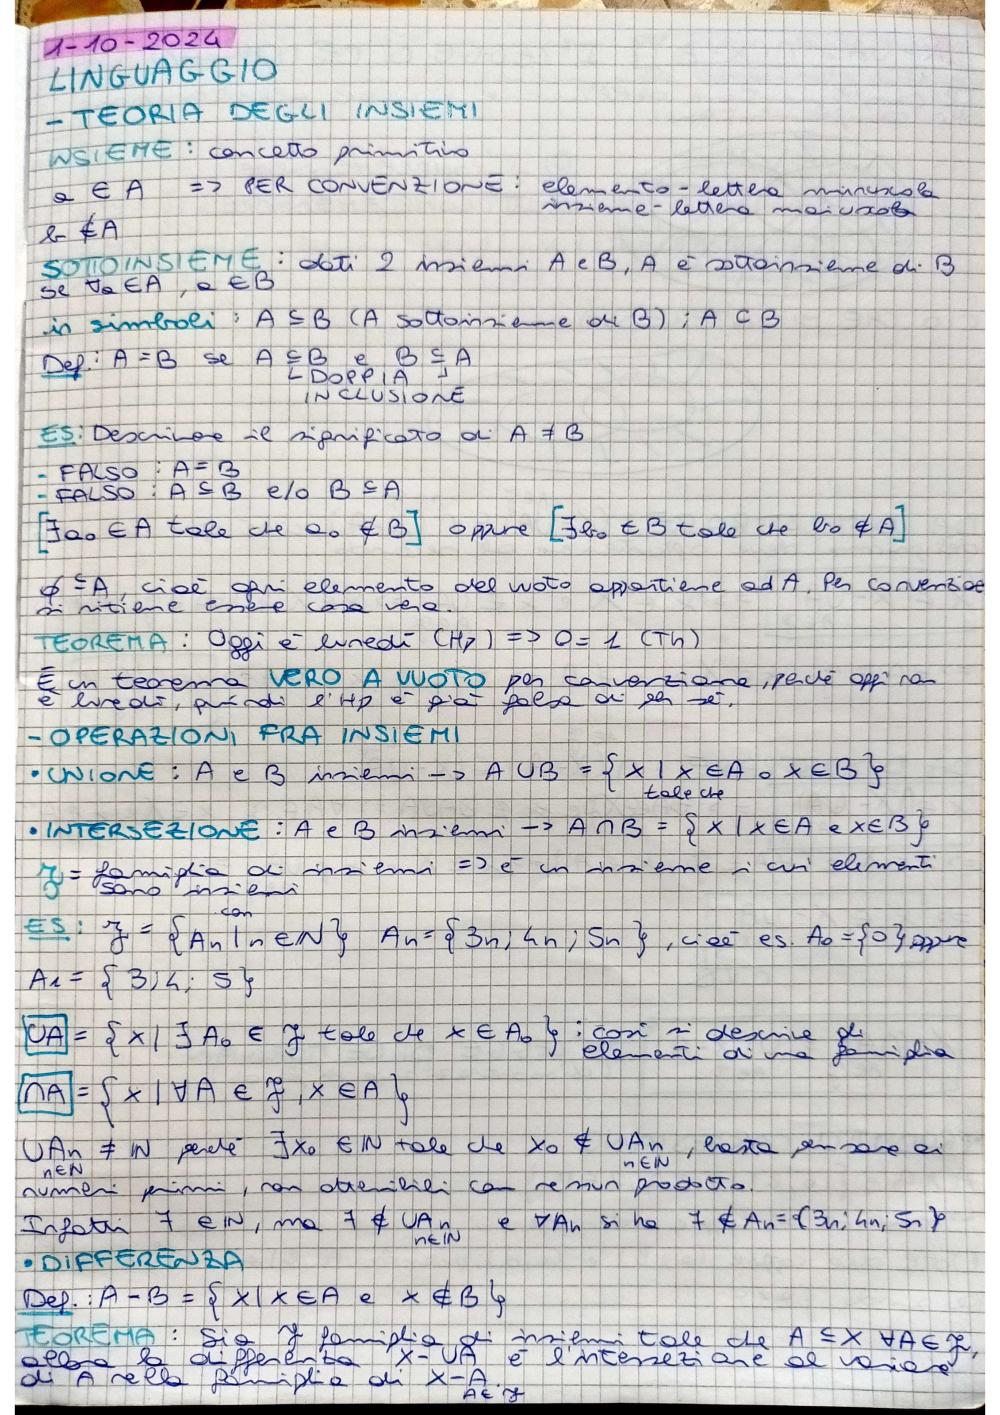 1-10-2024
LINGUAGGIO
- TEORIA DEGLI INSIEMI
INSIEME : concetto primitivo
a ∈ A => PER CONVENZIONE : elemento - lettera minuscola
insieme - lettera maiuscola
b ∉ A
SOTTOINSIEME : dati 2 insiemi A e B, A è sottoinsieme di B
se ∀a ∈ A , a ∈ B
in simboli : A ⊆ B (A sottoinsieme di B) ; A ⊂ B
Def.: A = B se A ⊆ B e B ⊆ A
DOPPIA
INCLUSIONE
ES: Descrivere il significato di A ≠ B
- FALSO : A = B
- FALSO : A ⊆ B e/o B ⊆ A
[∃a₀ ∈ A tale che a₀ ∉ B] oppure [∃b₀ ∈ B tale che b₀ ∉ A]
∅ ⊆ A, cioè ogni elemento del vuoto appartiene ad A. Per convenzione
si ritiene essere cosa vera.
TEOREMA : Oggi è lunedì (Hp) => 0 = 1 (Th)
È un teorema VERO A VUOTO per convenzione, perché oggi non
è lunedì, quindi l'Hp è già falsa di per sé.
- OPERAZIONI FRA INSIEMI
• UNIONE : A e B insiemi -> A ∪ B = { x | x ∈ A o x ∈ B }
tale che
• INTERSEZIONE : A e B insiemi -> A ∩ B = { x | x ∈ A e x ∈ B }
ℱ = famiglia di insiemi => è un insieme i cui elementi
sono insiemi
con
ES : ℱ = { An | n ∈ ℕ } An = { 3n ; 4n ; 5n } , cioè es. A₀ = {0} oppure
A₁ = { 3 ; 4 ; 5 }
∪A = { x | ∃ A₀ ∈ ℱ tale che x ∈ A₀ } : così si descrive gli
elementi di una famiglia
∩A = { x | ∀A ∈ ℱ , x ∈ A }
∪An ≠ ℕ perché ∃x₀ ∈ ℕ tale che x₀ ∉ ∪An , basta pensare ai
n∈ℕ n∈ℕ
numeri primi, non ottenibili con nessun prodotto.
Infatti 7 ∈ ℕ, ma 7 ∉ ∪An e ∀An si ha 7 ∉ An = {3n; 4n; 5n}
n∈ℕ
• DIFFERENZA
Def.: A - B = { x | x ∈ A e x ∉ B }
TEOREMA : Sia ℱ famiglia di insiemi tale che A ⊆ X ∀A ∈ ℱ,
allora la differenza X - ∪A è l'intersezione al variare
di A nella famiglia di X - A.
A∈ℱ